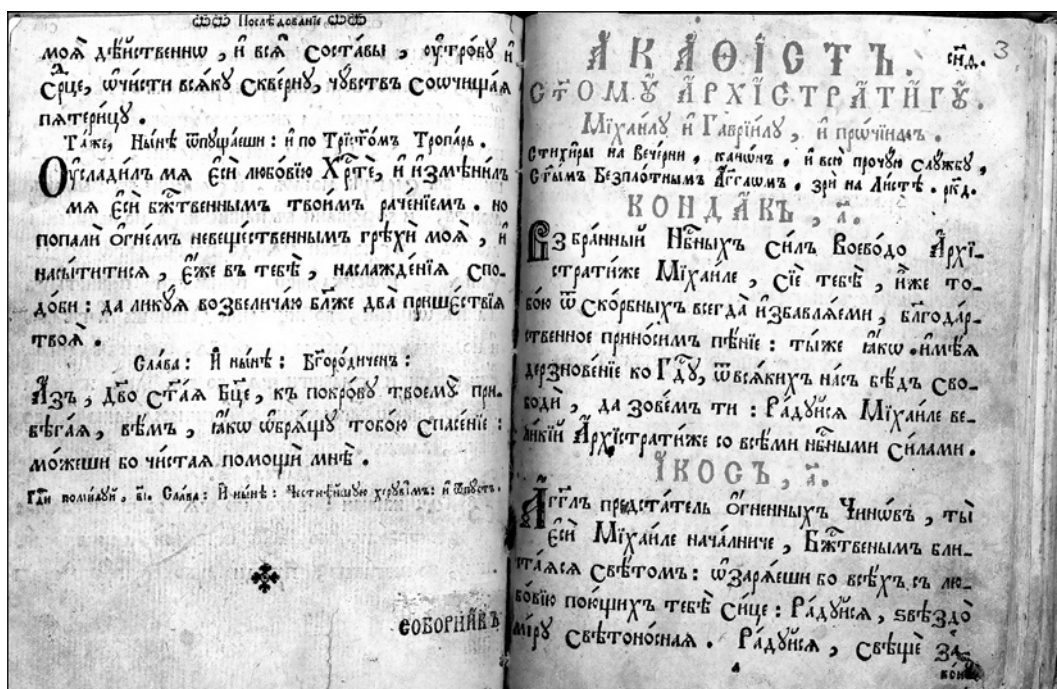 Послѣдованїе
моѧ̀ дѣ́йственнѡ , и҆ всѧ̑ Составы̀ , оу҆тро́бꙋ и҆
Ср҃це, ѡ҆чи́сти всѧ́кꙋ Скве́рнꙋ, чꙋ́вствъ Соѡчища́ѧ
пѧтери́цꙋ .
Та́же, Ны́нѣ ѿпꙋща́еши : и҆ по Трист҃о́мъ Тропа́рь .
Оу҆слади́лъ мѧ Е҆сѝ любо́вїю Хрⷭ҇тѐ, и҆ и҆змѣни́лъ
мѧ Е҆сѝ бж҃твеннымъ твои́мъ раче́нїемъ . но
попалѝ Огне́мъ невеще́ственнымъ грѣхѝ моѧ̑ , и҆
насы́титисѧ , Е҆́же въ тебѣ̀ , наслажде́нїѧ Спо-
до́би : да ликꙋ́ѧ возвелича́ю бл҃же два прише́ствїѧ
твоѧ̑ .
Сла́ва : И҆ ны́нѣ : Бг҃оро́диченъ :
А҆́зъ , Дв҃о Ст҃а́ѧ Бц҃е , къ покро́вꙋ твоемꙋ̀ при-
бѣга́ѧ , вѣ́мъ , ꙗ҆́кѡ ѡ҆брѧ́щꙋ тобо́ю Спасе́нїе :
мо́жеши бо чи́стаѧ помощѝ мнѣ̀ .
Гдⷭ҇и поми́лꙋй , в҃і. Сла́ва : И҆ ны́нѣ : Чеⷭ҇тнѣ́йшꙋю херꙋви́мъ : и҆ ѿпꙋ́стъ .
СОБОРНИ́КЪ
АКА́ѲІСТЪ . сн҃д . 3
СТ҃О́МꙊ А҆РХЇСТРАТИ́ГꙊ .
Мїхаи́лꙋ и҆ Гаврїи́лꙋ , и҆ про́чїимъ .
Стихи̑ры на Вече́рни , кано́нъ , и҆ всю̀ про́чꙋю слꙋ́жбꙋ ,
Ст҃ы́мъ Безпло́тнымъ А҆́гг҃лѡмъ , зрѝ на Ли́стѣ . рк҃д .
КОНДА́КЪ , а҃ .
Взбра́нный Нбⷭ҇ныхъ Си́лъ Воево́до А҆рхї-
страти́же Мїхаи́ле , Сїѐ тебѣ̀ , и҆́же то-
бо́ю ѿ Ско́рбныхъ всегда̀ и҆збавлѧ́еми , бл҃года́р-
ственное прино́симъ пѣ́нїе : ты́же ꙗ҆́кѡ . и҆мѣ́ѧ
дерзнове́нїе ко Гдⷭ҇ꙋ , ѿвсѧ́кихъ на́съ бѣ́дъ Сво-
бодѝ , да зове́мъ ти : Ра́дꙋйсѧ Мїхаи́ле ве-
ли́кїй А҆рхїстрати́же со всѣ́ми нбⷭ҇ными Си́лами .
І҆́КОСЪ , а҃ .
А҆́гг҃лъ предста́тель О҆́гненныхъ Чинѡ́въ , ты̀
Е҆сѝ Мїхаи́ле нача́лниче , Бж҃твенымъ бли-
ста́ѧсѧ Свѣ́томъ : ѡ҆зарѧ́еши бо всѣ́хъ съ лю-
бо́вїю пою́щихъ тебѣ̀ Си́це : Ра́дꙋйсѧ , ѕвѣздо̀
мі́рꙋ Свѣтоно́снаѧ . Ра́дꙋйсѧ , Свѣщѐ За-
ко́н